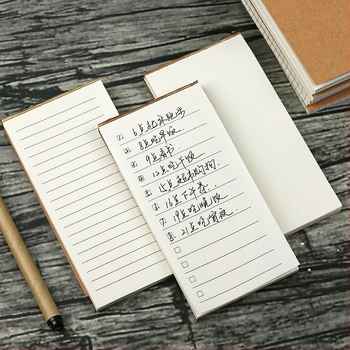 1. 6点起床跑步
2. 8点吃早饭
3. 9点看书
4. 12点吃午饭
5. 15点超市购物
6. 16点下午茶
7. 19点吃晚饭
8. 21点吃宵夜